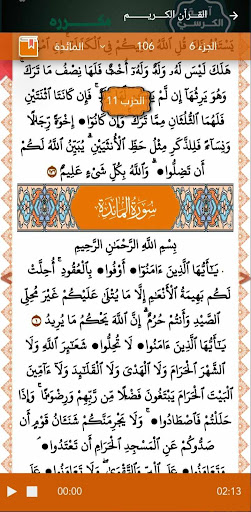 القرآن الكريم
الجزء 6 106 المائدة
هَلَكَ لَيْسَ لَهُۥ وَلَدٌ وَلَهُۥٓ أُخْتٌ فَلَهَا نِصْفُ مَا تَرَكَ
وَهُوَ يَرِثُهَآ إِن لَّمْ
الحزب 11
فَإِن كَانَتَا ٱثْنَتَيْنِ
فَلَهُمَا ٱلثُّلُثَانِ مِمَّا تَرَكَ وَإِن كَانُوٓا۟ إِخْوَةً رِّجَالًا
وَنِسَآءً فَلِلذَّكَرِ مِثْلُ حَظِّ ٱلْأُنثَيَيْنِ يُبَيِّنُ ٱللَّهُ لَكُمْ
أَن تَضِلُّوا۟ وَٱللَّهُ بِكُلِّ شَىْءٍ عَلِيمٌۢ
سُورَةُ المَائِدَةِ
بِسْمِ ٱللَّهِ ٱلرَّحْمَٰنِ ٱلرَّحِيمِ
يَٰٓأَيُّهَا ٱلَّذِينَ ءَامَنُوٓا۟ أَوْفُوا۟ بِٱلْعُقُودِ أُحِلَّتْ
لَكُم بَهِيمَةُ ٱلْأَنْعَٰمِ إِلَّا مَا يُتْلَىٰ عَلَيْكُمْ غَيْرَ مُحِلِّى
ٱلصَّيْدِ وَأَنتُمْ حُرُمٌ إِنَّ ٱللَّهَ يَحْكُمُ مَا يُرِيدُ ١
يَٰٓأَيُّهَا ٱلَّذِينَ ءَامَنُوا۟ لَا تُحِلُّوا۟ شَعَٰٓئِرَ ٱللَّهِ وَلَا
ٱلشَّهْرَ ٱلْحَرَامَ وَلَا ٱلْهَدْىَ وَلَا ٱلْقَلَٰٓئِدَ وَلَآ ءَآمِّينَ
ٱلْبَيْتَ ٱلْحَرَامَ يَبْتَغُونَ فَضْلًا مِّن رَّبِّهِمْ وَرِضْوَٰنًا وَإِذَا
حَلَلْتُمْ فَٱصْطَادُوا۟ وَلَا يَجْرِمَنَّكُمْ شَنَـَٔانُ قَوْمٍ أَن
صَدُّوكُمْ عَنِ ٱلْمَسْجِدِ ٱلْحَرَامِ أَن تَعْتَدُوا۟
00:00 02:13